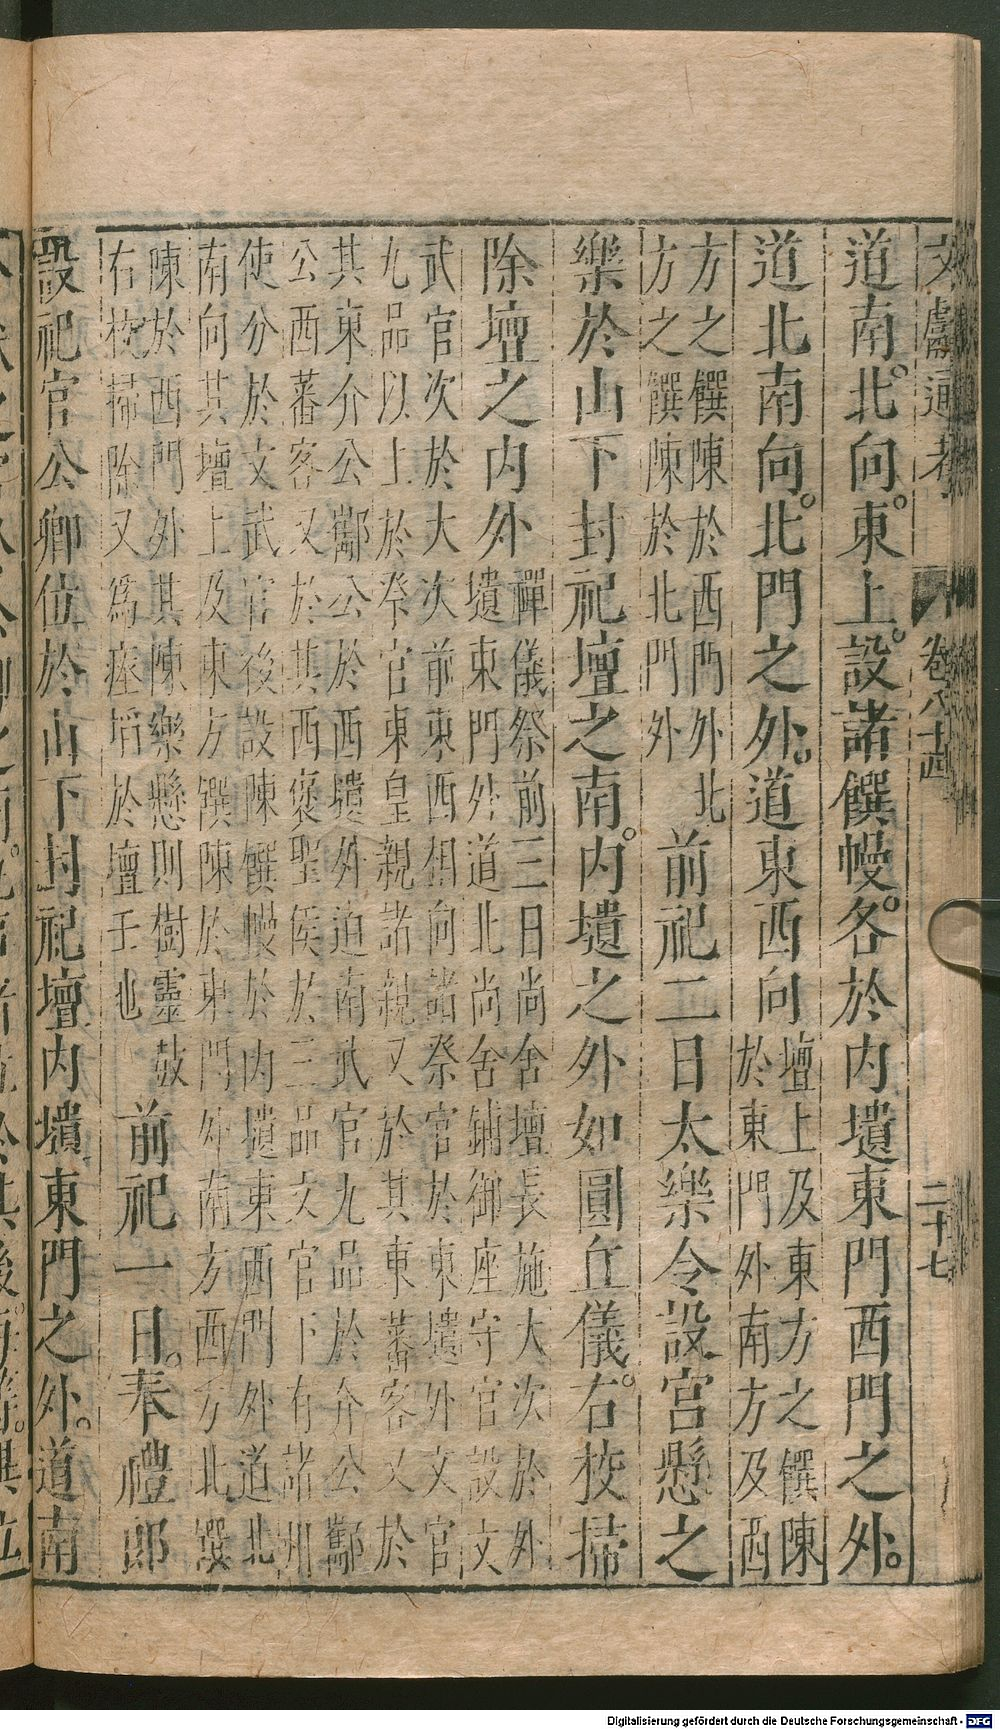 文獻通考 卷八十四 二十七
道南。北向。東上。設諸饌幔。各於內壝東門西門之外。
道北南向。北門之外。道東西向壇上及東方之饌陳
於東門外南方及西
方之饌陳於西門外北
方之饌陳於北門外前祀二日太樂令設宮懸之
樂於山下封祀壇之南。內壝之外如圓丘儀。右校掃
除壇之內外禪儀祭前三日尚舍壇長施大次於外
壝東門外道北尚舍鋪御座守官設文
武官次於大次前東西相向諸祭官於東壝外文官
九品以上於祭官東皇親諸親又於其東蕃客又於
其東介公酅公於西壝外迫南武官九品於介公酅
公西蕃客又於其西褒聖侯於三品文官下有諸州
使分於文武官後設陳饌幔於內壝東西門外道北
南向其壇上及東方饌陳於東門外南方西方北饌
陳於西門外其陳樂懸則樹靈鼓
右校掃除又爲瘞埳於壇壬也前祀一日。奉禮郎
設祀官公卿位於山下封祀壇內壝東門之外。道南
Digitalisierung gefördert durch die Deutsche Forschungsgemeinschaft - DFG